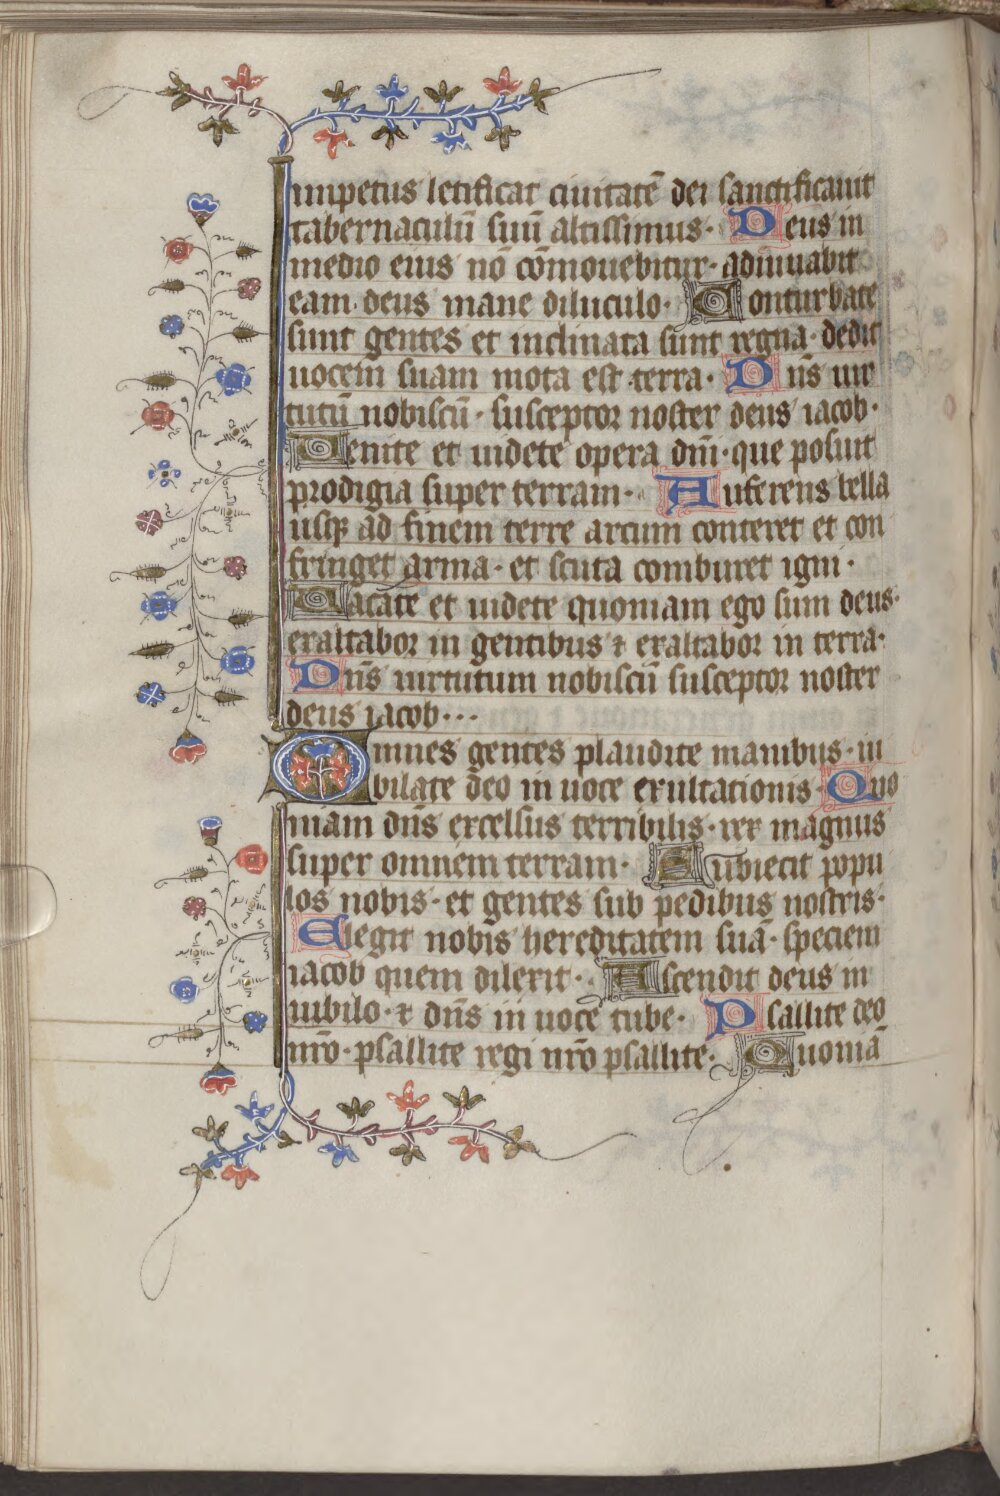 impetus letificat ciuitatē dei sanctificauit
tabernaculū suū altissimus · Deus in
medio eius nō cōmouebitur · adiuuabit
eam deus mane diluculo · Conturbate
sunt gentes et inclinata sunt regna · dedit
uocem suam mota est terra · Dn̄s uir
tutū nobiscū · susceptor noster deus iacob ·
Uenite et uidete opera dn̄i · que posuit
prodigia super terram · Auferens bella
usqꝫ ad finem terre arcum conteret et con
fringet arma · et scuta comburet igni ·
Uacate et uidete quoniam ego sum deus ·
exaltabor in gentibus ⁊ exaltabor in terra ·
Dn̄s uirtutum nobiscū susceptor noster
deus iacob · · ·
Omnes gentes plaudite manibus · iu
bilate deo in uoce exultationis · Quo
niam dn̄s excelsus terribilis · rex magnus
super omnem terram · Subiecit popu
los nobis · et gentes sub pedibus nostris ·
Elegit nobis hereditatem suā · speciem
iacob quem dilexit · Ascendit deus in
iubilo · ⁊ dn̄s in uoce tube · Psallite deo
nr̄o · psallite regi nr̄o psallite · Quoniā